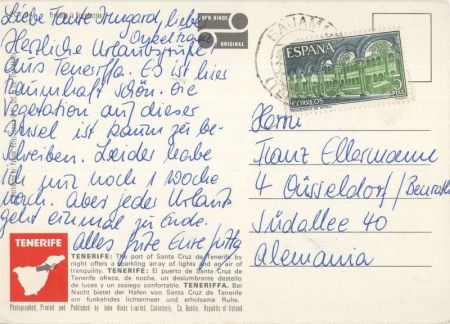 Liebe Tante Irmgard, lieber
Onkel Franz
Herzliche Urlaubsgrüße
aus Teneriffa. Es ist hier
traumhaft schön. Die
Vegetation auf dieser
Insel ist kaum zu be-
schreiben. Leider habe
ich nur noch 1 Woche
nach. Aber jeder Urlaub
geht einmal zu Ende.
Alles Gute Eure Jutta
JOHN HINDE
ORIGINAL
ESPAÑA
CORREOS
5
PTAS
Herrn
Franz Ellermann
4 Düsseldorf/Benrath
Südallee 40
Alemania
TENERIFE
TENERIFE: The port of Santa Cruz de Tenerife by
night offers a sparkling array of lights and an air of
tranquility. TENERIFE: El puerto de Santa Cruz de
Tenerife ofrece, de noche, un deslumbrante destello
de luces y un sosiego confortable. TENERIFFA. Bei
Nacht bietet der Hafen von Santa Cruz de Tenerife
ein funkelndes lichtermeer und erholsame Ruhe.
Photographed, Printed and Published by John Hinde Limited, Cabinteely, Co. Dublin, Republic of Ireland